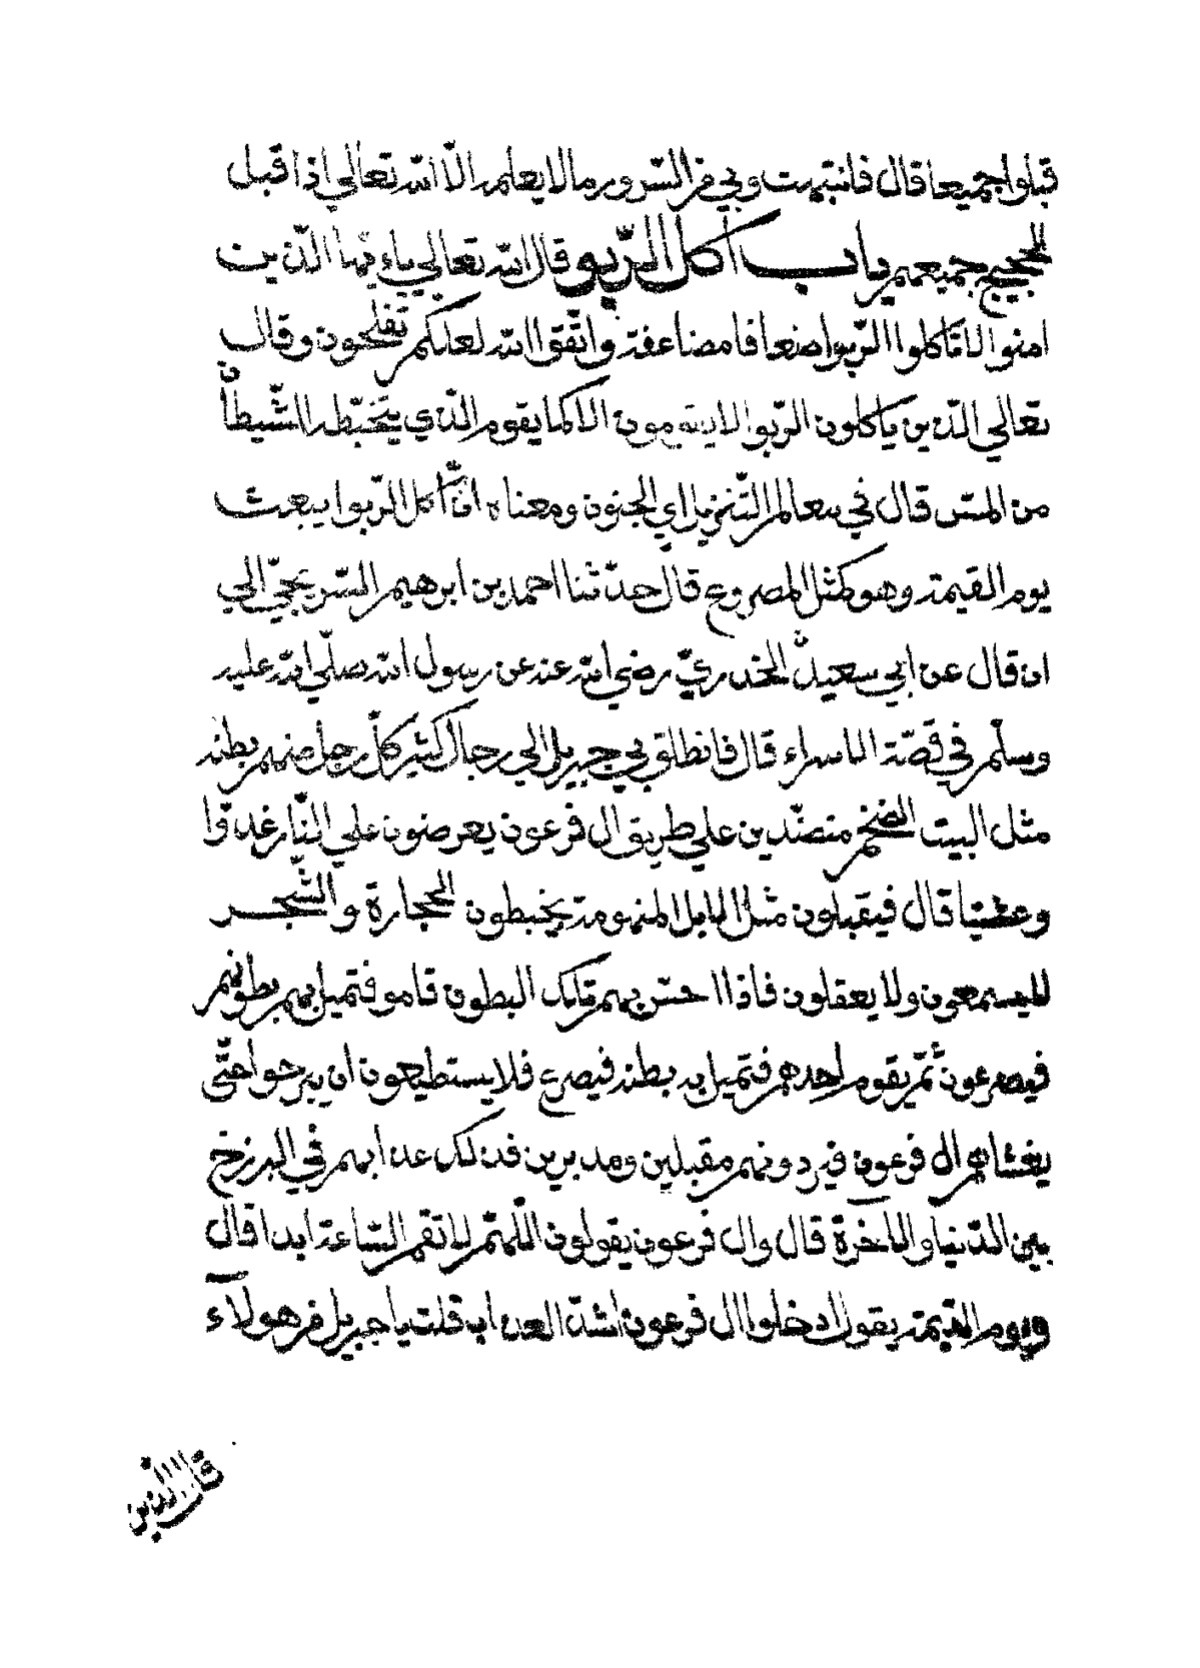 قبلوا جميعا قال فانتبهت وبي من السرور مالا يعلم الّا اللّه تعالي اذا قبل
الحجيج جميعهم باب اكل الرّبو قال اللّه تعالي ياءيّها الّذين
امنوا لا تاكلوا الرّبوا ضعافا مضاعفة واتّقوا اللّه لعلكم تفلحون وقال
تعالي الّذين ياكلون الرّبوا لا يقومون الا كما يقوم الّذي يتخبّطه الشّيطاّن
من المسّ قال في معالم التّنزيل اي الجنون ومعناه انّ اكل الرّبوا يبعث
يوم القيمة وهو كمثل المصروع قال حدّثنا احمد بن ابرهيم السّريجيّ الي
ان قال عن ابي سعيد الخدريّ رضي اللّه عنه عن رسول اللّه صلّي اللّه عليه
وسلّم في قصّة الاسراء قال فانطلق بي جبريل الي رجال كثير كلّ رجل منهم بطنه
مثل البيت الضخم متصدّين علي طريق ال فرعون يعرضون علي النّار غدوّا
وعشيّا قال فيقبلون مثل الابل المنهومة يخبطون الحجارة والشّجر
لايسمعون ولا يعقلون فاذا احسّ بهم تلك البطون قامو فتميل بهم بطونهم
فيصرعون ثمّ يقوم احدهم فتميل به بطنه فيصرع فلا يستطيعون ان يبرحوا حتّي
يغشاهم ال فرعون فيردونهم مقبلين ومدبرين فذلك عذابهم في البرزخ
بين الدّنيا والآخرة قال وال فرعون يقولون اللّهمّ لا تقم السّاعة ابدا قال
ويوم القيمة يقول ادخلوا ال فرعون اشدّ العذاب قلت يا جبريل من هولآء
قال الّذين